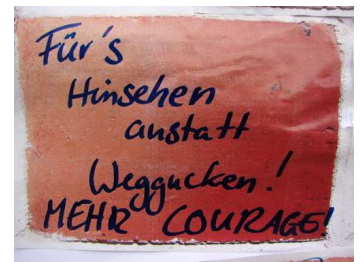 Für's
Hinsehen
anstatt
Weggucken!
MEHR COURAGE!